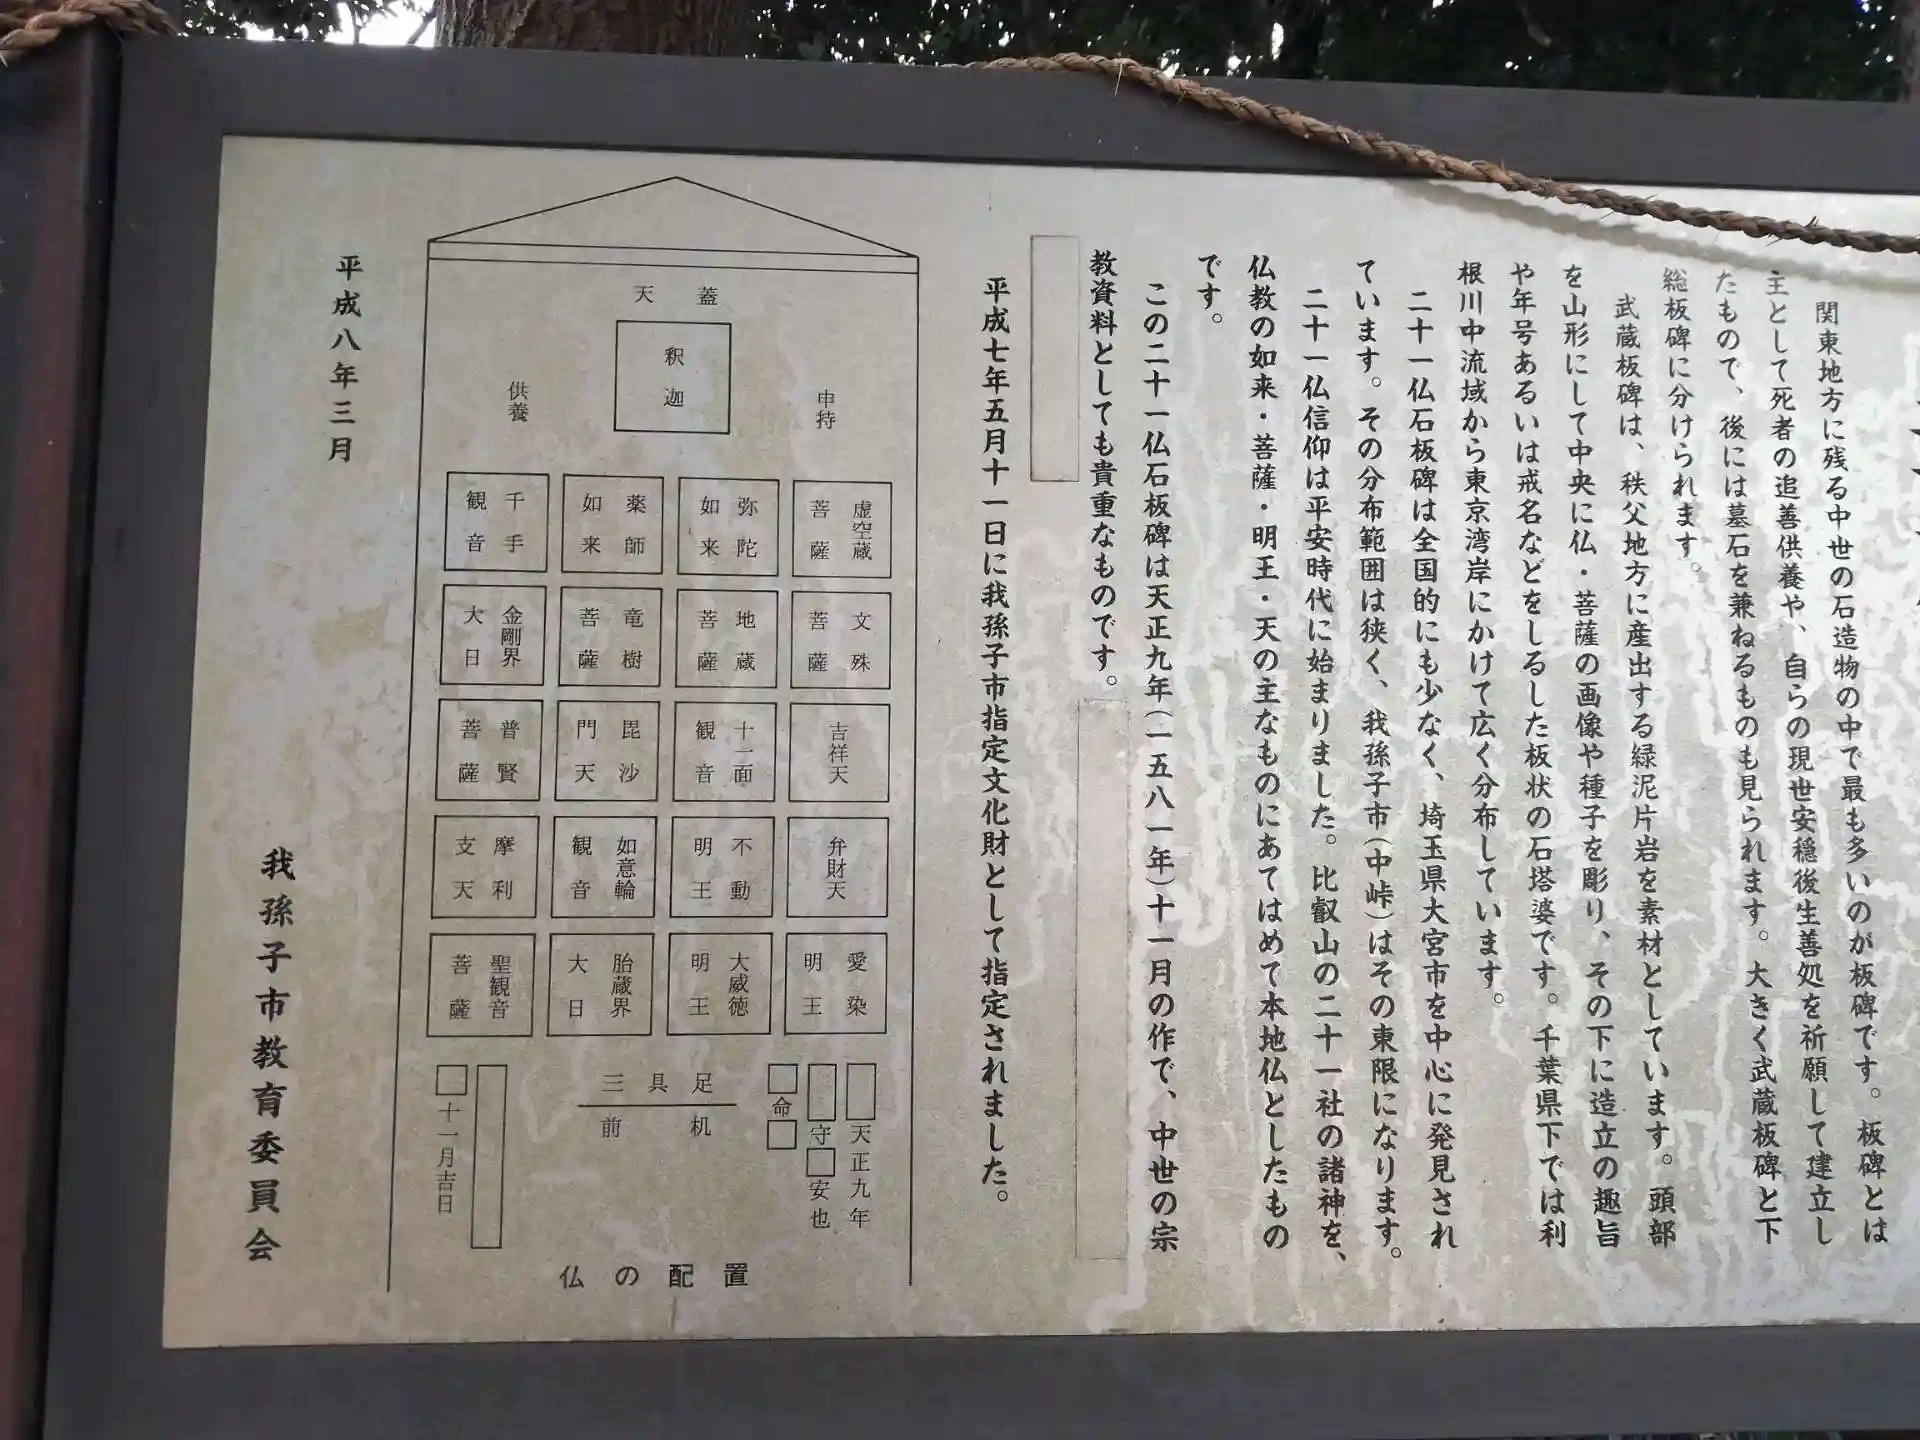 関東地方に残る中世の石造物の中で最も多いのが板碑です。板碑とは
主として死者の追善供養や、自らの現世安穏後生善処を祈願して建立し
たもので、後には墓石を兼ねるものも見られます。大きく武蔵板碑と下
総板碑に分けられます。
武蔵板碑は、秩父地方に産出する緑泥片岩を素材としています。頭部
を山形にして中央に仏・菩薩の画像や種子を彫り、その下に造立の趣旨
や年号あるいは戒名などをしるした板状の石塔婆です。千葉県下では利
根川中流域から東京湾岸にかけて広く分布しています。
二十一仏石板碑は全国的にも少なく、埼玉県大宮市を中心に発見され
ています。その分布範囲は狭く、我孫子市(中峠)はその東限になります。
二十一仏信仰は平安時代に始まりました。比叡山の二十一社の諸神を、
仏教の如来・菩薩・明王・天の主なものにあてはめて本地仏としたもの
です。
この二十一仏石板碑は天正九年(一五八一年)十一月の作で、中世の宗
教資料としても貴重なものです。
平成七年五月十一日に我孫子市指定文化財として指定されました。
天蓋
釈迦
申待
供養
虚空蔵菩薩
弥陀如来
薬師如来
千手観音
文殊菩薩
地蔵菩薩
竜樹菩薩
金剛界大日
吉祥天
十一面観音
毘沙門天
普賢菩薩
弁財天
不動明王
如意輪観音
摩利支天
愛染明王
大威徳明王
胎蔵界大日
聖観音菩薩
□天正九年
□守□安也
□命□
三具足
前机
□
□十一月吉日
仏の配置
平成八年三月
我孫子市教育委員会